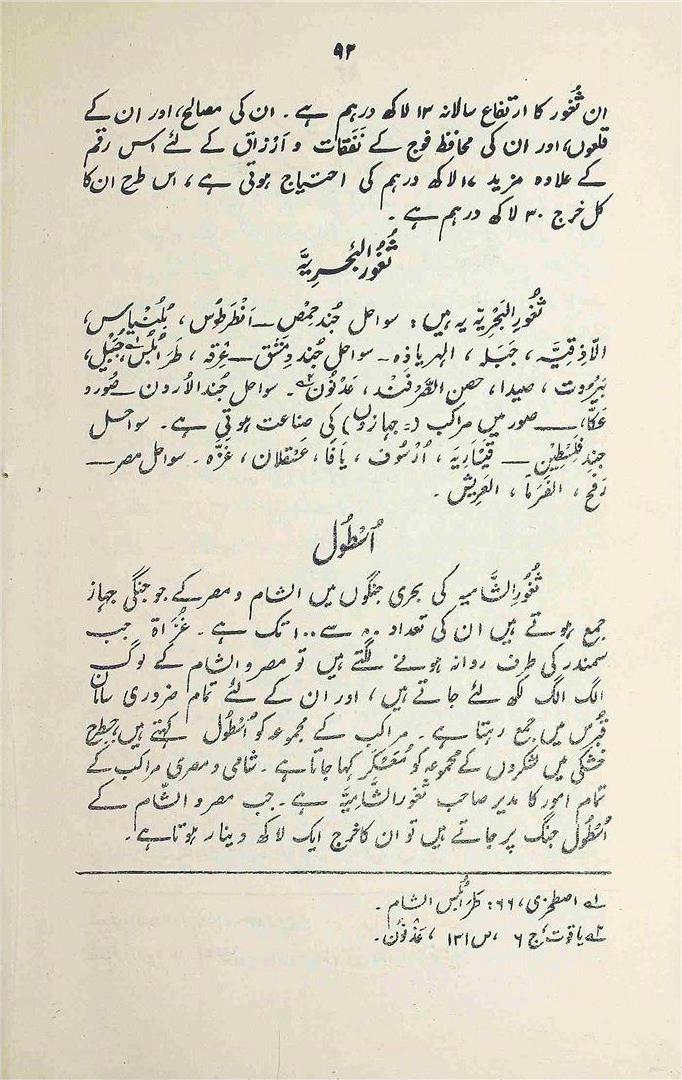 ۹۲
ان ثُغُور کا ارتفاع سالانہ ۱۳ لاکھ درہم ہے ۔ ان کی مصالح، اور ان کے
قلعوں، اور ان کی محافظ فوج کے نَفَقات و اَرْزاق کے لئے اس رقم
کے علاوہ مزید ۱۷ لاکھ درہم کی احتیاج ہوتی ہے ، اس طرح ان کا
کل خرچ ۳۰ لاکھ درہم ہے ۔
ثُغُورُ الْبَحْرِیَّہ
ثُغُورُ الْبَحْرِیَّہ یہ ہیں: سواحل جُند حِمْص ــ اَنْطَرْطُوس ، بُلُنْیاس،
الاَّذِقِیَّہ ، جَبَلہ ، الہریاذہ ۔ سواحل جُند دِمَشْق ــ عِرْقہ ، طَرَابُلُس۱؎، جُبَیْل،
بَیْرُوت ، صیدا ، حصن الصَّرَفَنْد ، عَدْنُون۲؎ ۔ سواحل جُند الأردون ــ صُور و
عَکّا، ــ صور میں مراکب (= جہازوں) کی صناعت ہوتی ہے ۔ سواحل
جُند فِلَسْطِیْن ــ قَیْسَارِیَہ ، اُرْسُوف ، یَافَا ، عَسْقلان ، غَزَّہ ۔ سواحل مصر ــ
رَفَح ، الفَرَمَا ، العَرِیش ۔
اُسْطُول
ثُغُورِ الشَّامیہ کی بحری جنگوں میں الشام و مصر کے جو جنگی جہاز
جمع ہوتے ہیں ان کی تعداد ۸۰ سے ۱۰۰ تک ہے ۔ غُزَاۃ جب
سمندر کی طرف روانہ ہونے لگتے ہیں تو مصر و الشام کے لوگ
الگ الگ لکھ لئے جاتے ہیں ، اور ان کے لئے تمام ضروری سامان
قُبْرُس میں جمع رہتا ہے ۔ مراکب کے مجموعہ کو اُسْطُول کہتے ہیں، جسطرح
خشکی میں لشکروں کے مجموعہ کو مُعَسْکَر کہا جاتا ہے ۔ شامی و مصری مراکب کے
تمام امور کا مدیر صاحب ثُغُور الشَّامِیَّہ ہے ۔ جب مصر و الشّام کے
اُسْطُول جنگ پر جاتے ہیں تو ان کا خرچ ایک لاکھ دینار ہوتا ہے ۔
۱؎ اصطخری، ۶۶: طَرَابُلُس الشام ۔
۲؎ یاقوت، ج ۶ ، ص ۱۳۱ ، عَذْنُوْن ۔